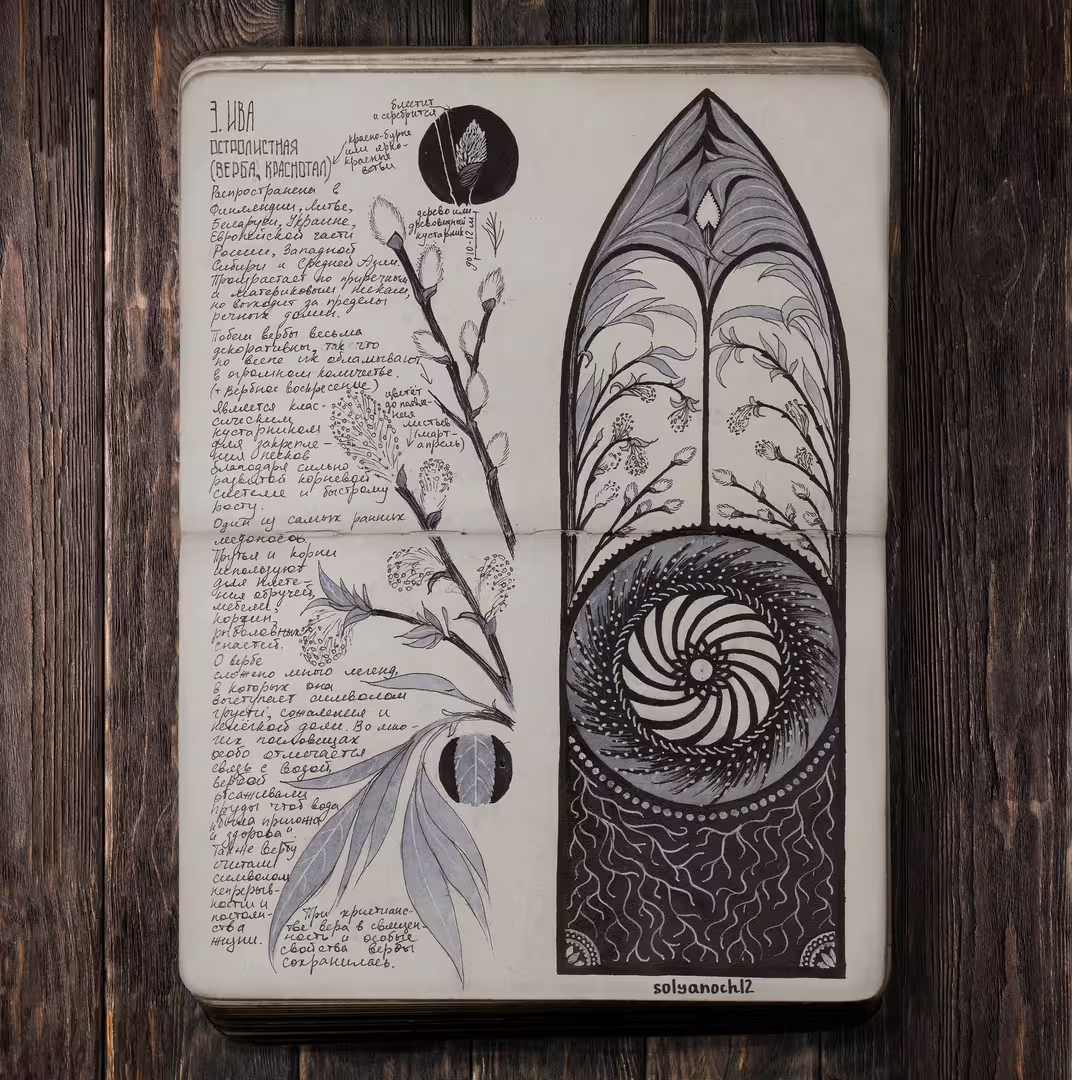 3. ИВА
ОСТРОЛИСТНАЯ
(ВЕРБА, КРАСНОТАЛ)
блестит
и серебрится
красно-бурые
или ярко-
красные
ветви
дерево или
древовидный
кустарник
до 10-12 м
Распространена в
Финляндии, Литве,
Беларуси, Украине,
Европейской части
России, Западной
Сибири и Средней Азии.
Произрастает по приречным
и материковым пескам,
не выходит за пределы
речных долин.
Побеги вербы весьма
декоративны, так что
по весне их обламывают
в огромном количестве.
(+ Вербное воскресение)
Является клас-
сическим
кустарником
для закрепле-
ния песков
благодаря сильно
развитой корневой
системе и быстрому
росту.
цветёт
до появле-
ния
листьев
(март-
апрель)
Один из самых ранних
медоносов.
Прутья и корни
используют
для плете-
ния обручей,
мебели,
корзин,
рыболовных
снастей.
О вербе
сложено много легенд,
в которых она
выступает символом
грусти, сожаления и
нелёгкой доли. Во мно-
гих пословицах
особо отмечается
связь с водой,
вербой
обсаживали
пруды чтоб вода
"была пригожа
и здорова".
Также вербу
считали
символом
непрерыв-
ности и
постоян-
ства
жизни.
При христианс-
тве вера в священ-
ность и особые
свойства вербы
сохранилась.
solyanoch12